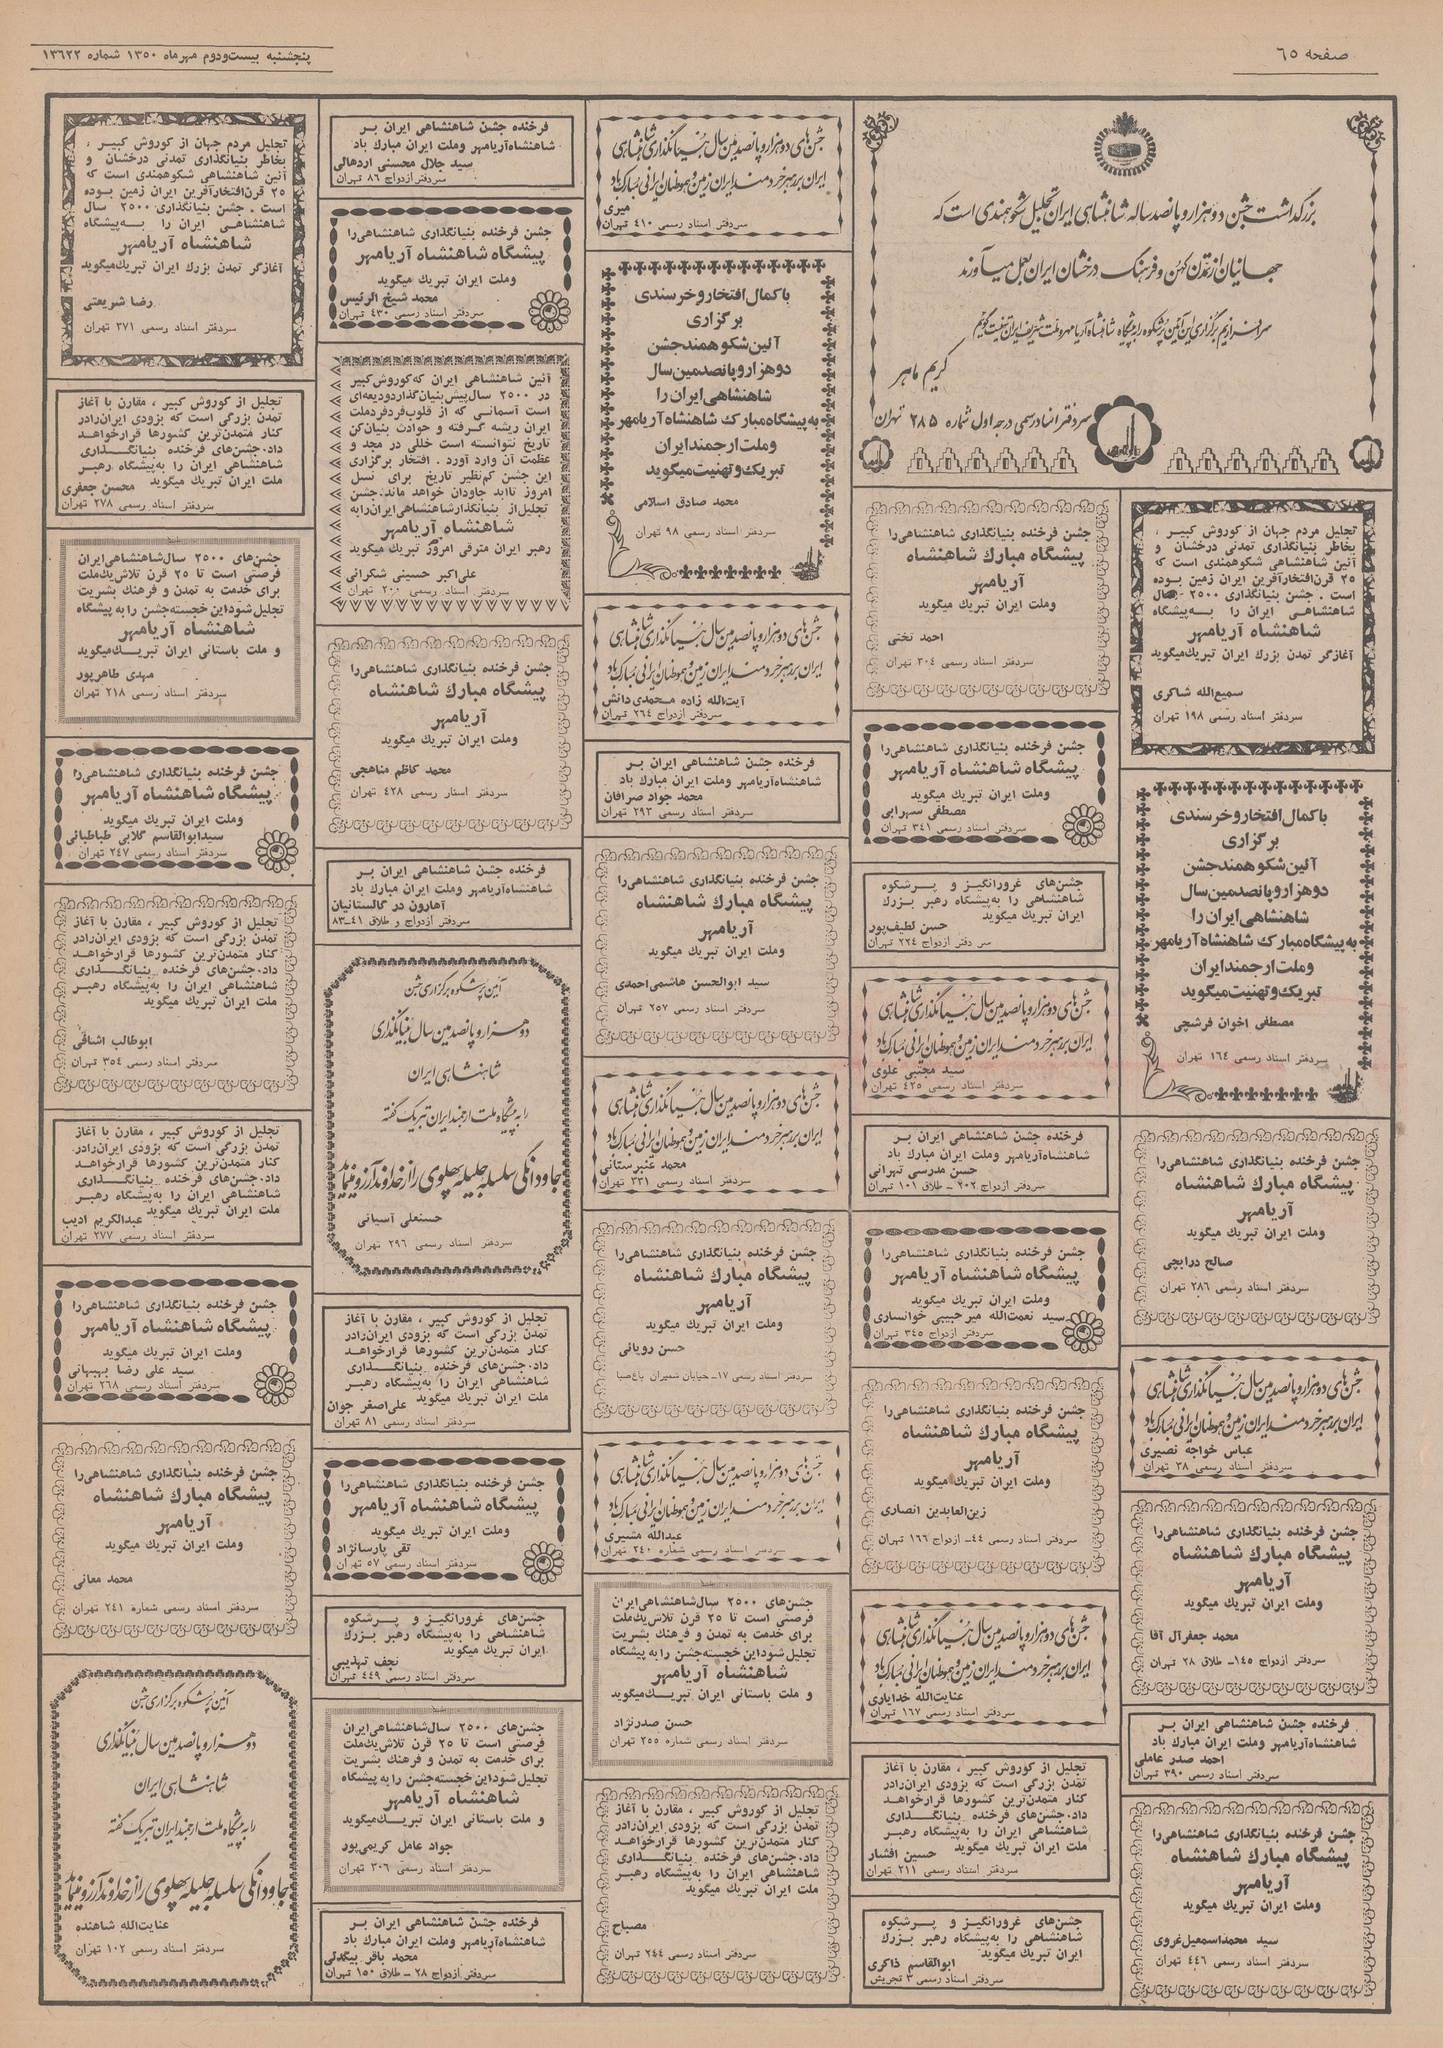 صفحه ٦٥
پنجشنبه بیست‌ودوم مهرماه ۱۳۵۰ شماره ۱۳٦۲۲
بزرگداشت جشن دوهزاروپانصدساله شاهنشاهی ایران تجلیل شکوهمندی است که
جهانیان از تمدن کهن و فرهنگ درخشان ایران بعمل میآورند
سرافرازیم برگزاری این آئین پرشکوه را به پیشگاه شاهنشاه آریامهر و ملت شریف ایران تهنیت گوئیم
کریم ماهر
سردفتر اسناد رسمی درجه اول شماره ۲۸۵ تهران
تجلیل مردم جهان از کوروش کبیر ،
بخاطر بنیانگذاری تمدنی درخشان و
آئین شاهنشاهی شکوهمندی است که
۲۵ قرن‌افتخارآفرین ایران زمین بوده
است . جشن بنیانگذاری ۲۵۰۰ سال
شاهنشاهی ایران را به‌پیشگاه
شاهنشاه آریامهر
آغازگر تمدن بزرك ایران تبریك‌میگوید
سمیع‌الله شاکری
سردفتر اسناد رسمی ۱۹۸ تهران
با کمال افتخار و خرسندی
برگزاری
آئین شکوهمند جشن
دوهزار و پانصدمین سال
شاهنشاهی ایران را
به پیشگاه مبارك شاهنشاه آریامهر
و ملت ارجمند ایران
تبریك و تهنیت میگوید
مصطفی اخوان فرشچی
سردفتر اسناد رسمی ۱٦٤ تهران
جشن فرخنده بنیانگذاری شاهنشاهی‌را
پیشگاه مبارك شاهنشاه
آریامهر
وملت ایران تبریك میگوید
صالح درایجی
سردفتر اسناد رسمی ۲۸٦ تهران
جشن‌های دوهزاروپانصدمین سال بنیانگذاری شاهنشاهی
ایران بر رهبر خردمند ایران زمین و هموطنان ایرانی مبارک باد
عباس خواجه نصیری
سردفتر اسناد رسمی ۲۸ تهران
جشن فرخنده بنیانگذاری شاهنشاهی‌را
پیشگاه مبارك شاهنشاه
آریامهر
وملت ایران تبریك میگوید
محمد جعفرآل آقا
سردفتر ازدواج ۱٤۵ـ طلاق ۲۸ تهران
فرخنده جشن شاهنشاهی ایران بر
شاهنشاه‌آریامهر وملت ایران مبارك باد
احمد صدر عاملی
سردفتر اسناد رسمی ۳۹۰ تهران
جشن فرخنده بنیانگذاری شاهنشاهی‌را
پیشگاه مبارك شاهنشاه
آریامهر
وملت ایران تبریك میگوید
سید محمداسمعیل غروی
سردفتر اسناد رسمی ٤٤٦ تهران
جشن فرخنده بنیانگذاری شاهنشاهی‌را
پیشگاه مبارك شاهنشاه
آریامهر
وملت ایران تبریك میگوید
احمد تختی
سردفتر اسناد رسمی ۳۰٤ تهران
جشن فرخنده بنیانگذاری شاهنشاهی‌را
پیشگاه شاهنشاه آریامهر
وملت ایران تبریك میگوید
مصطفی سهرابی
سردفتر اسناد رسمی ۳٤۱ تهران
جشن‌های غرورانگیز و پرشکوه
شاهنشاهی را به‌پیشگاه رهبر بزرك
ایران تبریك میگوید
حسن لطیف‌پور
سردفتر ازدواج ۲۲٤ تهران
جشن‌های دوهزاروپانصدمین سال بنیانگذاری شاهنشاهی
ایران بر رهبر خردمند ایران زمین و هموطنان ایرانی مبارک باد
سید مجتبی علوی
سردفتر اسناد رسمی ٤۲۵ تهران
فرخنده جشن شاهنشاهی ایران بر
شاهنشاه‌آریامهر وملت ایران مبارك باد
حسن مدرسی تهرانی
سردفتر ازدواج ۲۰۲ - طلاق ۱۰۱ تهران
جشن فرخنده بنیانگذاری شاهنشاهی‌را
پیشگاه شاهنشاه آریامهر
وملت ایران تبریك میگوید
سید نعمت‌الله میرحبیبی خوانساری
سردفتر ازدواج ۳٤۵ تهران
جشن فرخنده بنیانگذاری شاهنشاهی‌را
پیشگاه مبارك شاهنشاه
آریامهر
وملت ایران تبریك میگوید
زین‌العابدین انصاری
سردفتر اسناد رسمی ٤٤ـ ازدواج ۱٦٦ تهران
جشن‌های دوهزاروپانصدمین سال بنیانگذاری شاهنشاهی
ایران بر رهبر خردمند ایران زمین و هموطنان ایرانی مبارک باد
عنایت‌الله خدایاری
سردفتر اسناد رسمی ۱٦۷ تهران
تجلیل از کوروش کبیر ، مقارن با آغاز
تمدن بزرگی است که بزودی ایران‌رادر
کنار متمدن‌ترین کشورها قرارخواهد
داد.جشن‌های فرخنده بنیانگذاری
شاهنشاهی ایران را به‌پیشگاه رهبر
ملت ایران تبریك میگوید
حسین افشار
سردفتر اسناد رسمی ۲۱۱ تهران
جشن‌های غرورانگیز و پرشکوه
شاهنشاهی را به‌پیشگاه رهبر بزرك
ایران تبریك میگوید
ابوالقاسم ذاکری
سردفتر اسناد رسمی ۳ تجریش
جشن‌های دوهزاروپانصدمین سال بنیانگذاری شاهنشاهی
ایران بر رهبر خردمند ایران زمین و هموطنان ایرانی مبارک باد
میری
سردفتر اسناد رسمی ٤۱۰ تهران
با کمال افتخار و خرسندی
برگزاری
آئین شکوهمند جشن
دوهزار و پانصدمین سال
شاهنشاهی ایران را
به پیشگاه مبارك شاهنشاه آریامهر
و ملت ارجمند ایران
تبریك و تهنیت میگوید
محمد صادق اسلامی
سردفتر اسناد رسمی ۹۸ تهران
جشن‌های دوهزاروپانصدمین سال بنیانگذاری شاهنشاهی
ایران بر رهبر خردمند ایران زمین و هموطنان ایرانی مبارک باد
آیت‌الله زاده محمدی دانش
سردفتر ازدواج ۲٦٤ تهران
فرخنده جشن شاهنشاهی ایران بر
شاهنشاه‌آریامهر وملت ایران مبارك باد
محمد جواد صرافان
سردفتر اسناد رسمی ۲۹۳ تهران
جشن فرخنده بنیانگذاری شاهنشاهی‌را
پیشگاه مبارك شاهنشاه
آریامهر
وملت ایران تبریك میگوید
سید ابوالحسن هاشمی‌احمدی
سردفتر اسناد رسمی ۲۵۷ تهران
جشن‌های دوهزاروپانصدمین سال بنیانگذاری شاهنشاهی
ایران بر رهبر خردمند ایران زمین و هموطنان ایرانی مبارک باد
محمد عنبرستانی
سردفتر اسناد رسمی ۳۳۱ تهران
جشن فرخنده بنیانگذاری شاهنشاهی‌را
پیشگاه مبارك شاهنشاه
آریامهر
وملت ایران تبریك میگوید
حسن رویائی
سردفتر اسناد رسمی ۱۷ـ خیابان شمیران باغ‌صبا
جشن‌های دوهزاروپانصدمین سال بنیانگذاری شاهنشاهی
ایران بر رهبر خردمند ایران زمین و هموطنان ایرانی مبارک باد
عبدالله مشیری
سردفتر اسناد رسمی شماره ۲٤۰ تهران
جشن‌های ۲۵۰۰ سال‌شاهنشاهی‌ایران
فرصتی است تا ۲۵ قرن تلاش‌یك‌ملت
برای خدمت به تمدن و فرهنك بشریت
تجلیل شوداین خجسته‌جشن را به پیشگاه
شاهنشاه آریامهر
و ملت باستانی ایران تبریك‌میگوید
حسن صدرنژاد
سردفتر اسناد رسمی شماره ۲۵۵ تهران
تجلیل از کوروش کبیر ، مقارن با آغاز
تمدن بزرگی است که بزودی ایران‌رادر
کنار متمدن‌ترین کشورها قرارخواهد
داد.جشن‌های فرخنده بنیانگذاری
شاهنشاهی ایران را به‌پیشگاه رهبر
ملت ایران تبریك میگوید
مصباح
سردفتر اسناد رسمی ۲٤٤ تهران
فرخنده جشن شاهنشاهی ایران بر
شاهنشاه‌آریامهر وملت ایران مبارك باد
سید جلال محسنی اردهالی
سردفتر ازدواج ۸٦ تهران
جشن فرخنده بنیانگذاری شاهنشاهی‌را
پیشگاه شاهنشاه آریامهر
وملت ایران تبریك میگوید
محمد شیخ الرئیس
سردفتر اسناد رسمی ٤۳۰ تهران
آئین شاهنشاهی ایران که‌کوروش‌کبیر
در ۲۵۰۰ سال‌پیش‌بنیان‌گذاردودیعه‌ای
است آسمانی که از قلوب‌فردفردملت
ایران ریشه گرفته و حوادث بنیان‌کن
تاریخ نتوانسته است خللی در مجد و
عظمت آن وارد آورد . افتخار برگزاری
این جشن کم‌نظیر تاریخ برای نسل
امروز تاابد جاودان خواهد ماند.جشن
تجلیل‌از بنیانگذارشاهنشاهی‌ایران‌رابه
شاهنشاه آریامهر
رهبر ایران مترقی امروز تبریك میگوید
علی‌اکبر حسینی شکرائی
سردفتر اسناد رسمی ۲۰۰ تهران
جشن فرخنده بنیانگذاری شاهنشاهی‌را
پیشگاه مبارك شاهنشاه
آریامهر
وملت ایران تبریك میگوید
محمد کاظم مناهجی
سردفتر اسناد رسمی ٤۲۸ تهران
فرخنده جشن شاهنشاهی ایران بر
شاهنشاه‌آریامهر وملت ایران مبارك باد
آهارون در گالستانیان
سردفتر ازدواج و طلاق ٤۱-۸۳
آئین پرشکوه برگزاری جشن
دوهزاروپانصدمین سال بنیانگذاری
شاهنشاهی ایران
را به پیشگاه ملت ارجمند ایران تبریک گفته
جاودانگی سلسله جلیله پهلوی را از خداوند آرزو مینماید
حسنعلی آسیائی
سردفتر اسناد رسمی ۲۹٦ تهران
تجلیل از کوروش کبیر ، مقارن با آغاز
تمدن بزرگی است که بزودی ایران‌رادر
کنار متمدن‌ترین کشورها قرارخواهد
داد.جشن‌های فرخنده بنیانگذاری
شاهنشاهی ایران را به‌پیشگاه رهبر
ملت ایران تبریك میگوید
علی‌اصغر جوان
سردفتر اسناد رسمی ۸۱ تهران
جشن فرخنده بنیانگذاری شاهنشاهی‌را
پیشگاه شاهنشاه آریامهر
وملت ایران تبریك میگوید
تقی پارسانژاد
سردفتر اسناد رسمی ۵۷ تهران
جشن‌های غرورانگیز و پرشکوه
شاهنشاهی را به‌پیشگاه رهبر بزرك
ایران تبریك میگوید
نجف تهذیبی
سردفتر اسناد رسمی ٤٤۹ تهران
جشن‌های ۲۵۰۰ سال‌شاهنشاهی‌ایران
فرصتی است تا ۲۵ قرن تلاش‌یك‌ملت
برای خدمت به تمدن و فرهنك بشریت
تجلیل شوداین خجسته‌جشن را به پیشگاه
شاهنشاه آریامهر
و ملت باستانی ایران تبریك‌میگوید
جواد عامل کریمی‌پور
سردفتر اسناد رسمی ۳۰٦ تهران
فرخنده جشن شاهنشاهی ایران بر
شاهنشاه‌آریامهر وملت ایران مبارك باد
محمد باقر بیگدلی
سردفتر ازدواج ۲۸ - طلاق ۱۵۰ تهران
تجلیل مردم جهان از کوروش کبیر ،
بخاطر بنیانگذاری تمدنی درخشان و
آئین شاهنشاهی شکوهمندی است که
۲۵ قرن‌افتخارآفرین ایران زمین بوده
است . جشن بنیانگذاری ۲۵۰۰ سال
شاهنشاهی ایران را به‌پیشگاه
شاهنشاه آریامهر
آغازگر تمدن بزرك ایران تبریك‌میگوید
رضا شریعتی
سردفتر اسناد رسمی ۳۷۱ تهران
تجلیل از کوروش کبیر ، مقارن با آغاز
تمدن بزرگی است که بزودی ایران‌رادر
کنار متمدن‌ترین کشورها قرارخواهد
داد.جشن‌های فرخنده بنیانگذاری
شاهنشاهی ایران را به‌پیشگاه رهبر
ملت ایران تبریك میگوید
محسن جعفری
سردفتر اسناد رسمی ۲۷۸ تهران
جشن‌های ۲۵۰۰ سال‌شاهنشاهی‌ایران
فرصتی است تا ۲۵ قرن تلاش‌یك‌ملت
برای خدمت به تمدن و فرهنك بشریت
تجلیل شوداین خجسته‌جشن را به پیشگاه
شاهنشاه آریامهر
و ملت باستانی ایران تبریك‌میگوید
مهدی طاهرپور
سردفتر اسناد رسمی ۲۱۸ تهران
جشن فرخنده بنیانگذاری شاهنشاهی‌را
پیشگاه شاهنشاه آریامهر
وملت ایران تبریك میگوید
سیدابوالقاسم گلابی طباطبائی
سردفتر اسناد رسمی ۲٤۷ تهران
تجلیل از کوروش کبیر ، مقارن با آغاز
تمدن بزرگی است که بزودی ایران‌رادر
کنار متمدن‌ترین کشورها قرارخواهد
داد.جشن‌های فرخنده بنیانگذاری
شاهنشاهی ایران را به‌پیشگاه رهبر
ملت ایران تبریك میگوید
ابوطالب اشاقی
سردفتر اسناد رسمی ۳۵٤ تهران
تجلیل از کوروش کبیر ، مقارن با آغاز
تمدن بزرگی است که بزودی ایران‌رادر
کنار متمدن‌ترین کشورها قرارخواهد
داد.جشن‌های فرخنده بنیانگذاری
شاهنشاهی ایران را به‌پیشگاه رهبر
ملت ایران تبریك میگوید
عبدالکریم ادیب
سردفتر اسناد رسمی ۲۷۷ تهران
جشن فرخنده بنیانگذاری شاهنشاهی‌را
پیشگاه شاهنشاه آریامهر
وملت ایران تبریك میگوید
سید علی رضا بهبهانی
سردفتر اسناد رسمی ۲٦۸ تهران
جشن فرخنده بنیانگذاری شاهنشاهی‌را
پیشگاه مبارك شاهنشاه
آریامهر
وملت ایران تبریك میگوید
محمد معانی
سردفتر اسناد رسمی شماره ۲٤۱ تهران
آئین پرشکوه برگزاری جشن
دوهزاروپانصدمین سال بنیانگذاری
شاهنشاهی ایران
را به پیشگاه ملت ارجمند ایران تبریک گفته
جاودانگی سلسله جلیله پهلوی را از خداوند آرزو مینماید
عنایت‌الله شاهنده
سردفتر اسناد رسمی ۱۰۲ تهران